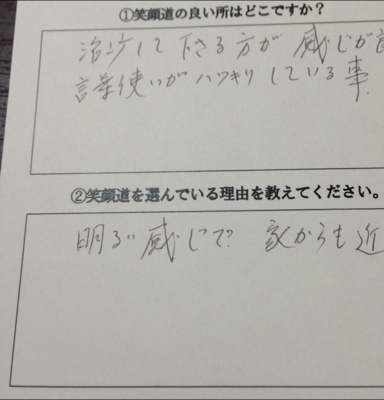 ①笑顔道の良い所はどこですか？
治療して下さる方が 感じが良
言葉使いがハッキリしている事
②笑顔道を選んでいる理由を教えてください。
明るい感じで 家からも近